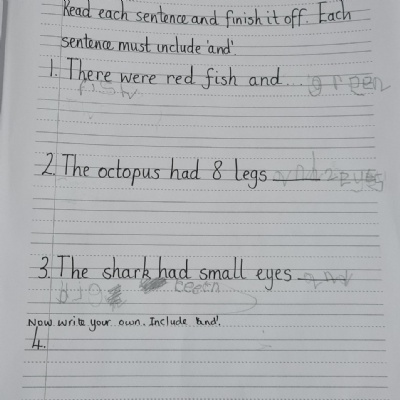 Read each sentence and finish it off. Each
sentence must include 'and'.
1. There were red fish and ... green
fish
2. The octopus had 8 legs and 2 eyes
3. The shark had small eyes and
teeth
Now write your own. Include 'and'.
4.